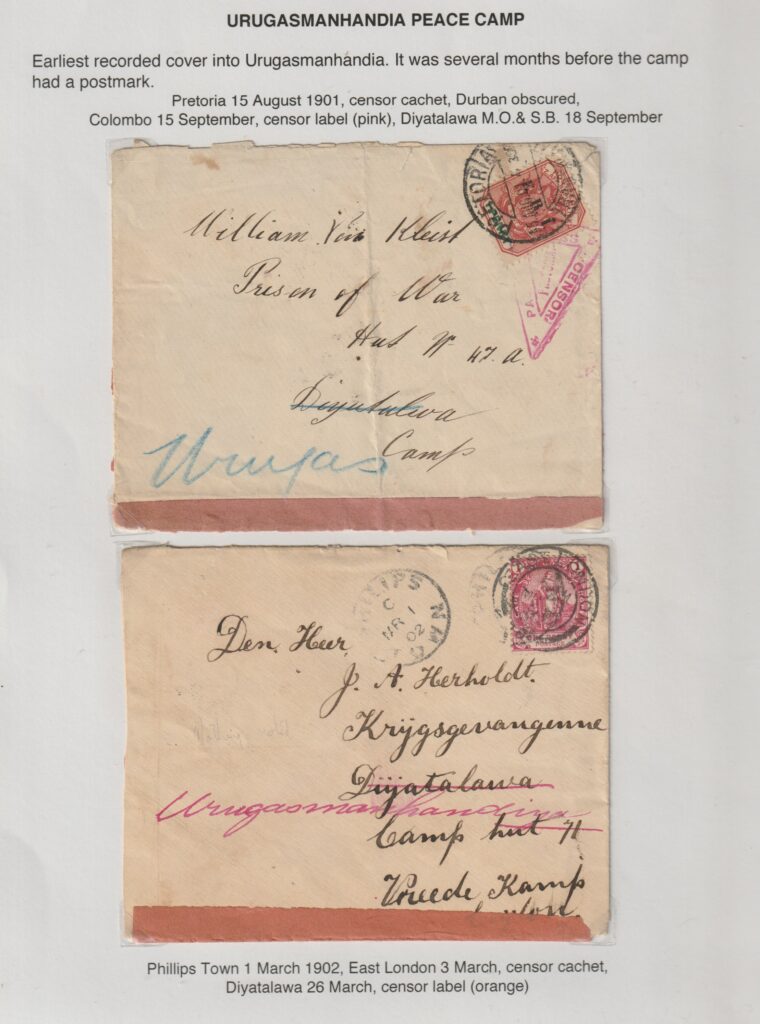 URUGASMANHANDIA PEACE CAMP
Earliest recorded cover into Urugasmanhandia. It was several months before the camp
had a postmark.
Pretoria 15 August 1901, censor cachet, Durban obscured,
Colombo 15 September, censor label (pink), Diyatalawa M.O.& S.B. 18 September
PRETORIA
CENSOR
PA
William Von Kleist
Prison of War
Hut No 47. a.
Diyatalawa
Urugas Camp
PHILIPS
C
MR 1
02
Den Heer
J. A. Herholdt.
Krijgsgevangenne
Diyatalawa
Urugasmanhandiya
Camp hut 71
Vreede Kamp
Phillips Town 1 March 1902, East London 3 March, censor cachet,
Diyatalawa 26 March, censor label (orange)